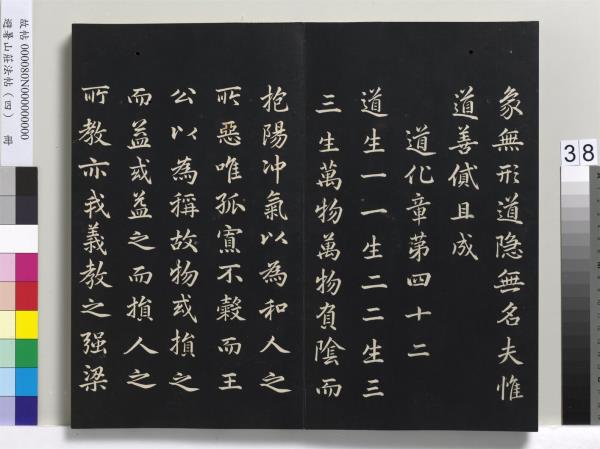 象無形道隐無名夫惟
道善貸且成
道化章第四十二
道生一一生二二生三
三生萬物萬物負陰而
抱陽冲氣以為和人之
所惡唯孤寡不穀而王
公以為稱故物或損之
而益或益之而損人之
所教亦我義教之强梁
故帖 000080N000000000
避暑山莊法帖（四） 冊
38